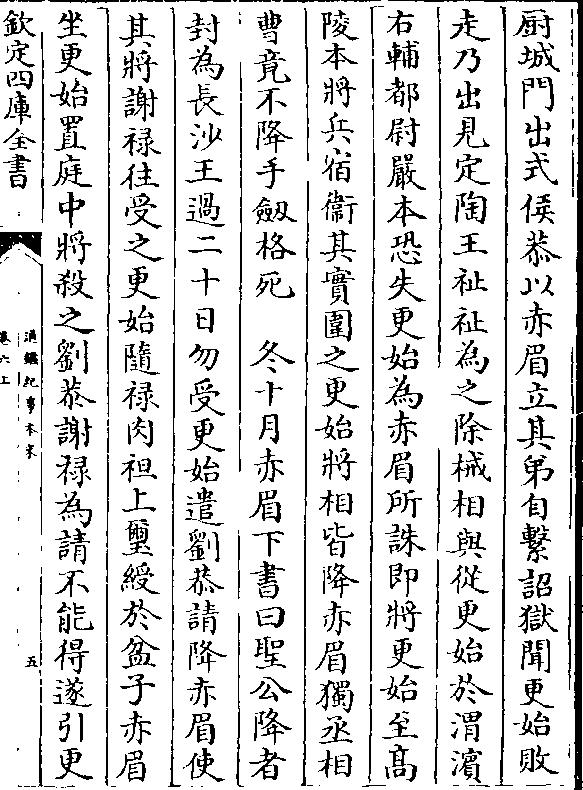 厨城門出式侯恭以赤眉立其弟自繫詔獄聞更始敗
走乃出見定陶王祉祉為之除械相與從更始於渭濱
右輔都尉嚴本恐失更始為赤眉所誅即將更始至髙
陵本將兵宿衞其實圍之更始將相皆降赤眉獨丞相
曹竟不降手劔格死　冬十月赤眉下書曰聖公降者
封為長沙王過二十日勿受更始遣劉恭請降赤眉使
其將謝禄往受之更始隨禄肉袒上璽綬於盆子赤眉
坐更始置庭中將殺之劉恭謝禄為請不能得遂引更
欽定四庫全書
通鑑紀事本末
卷六上
五